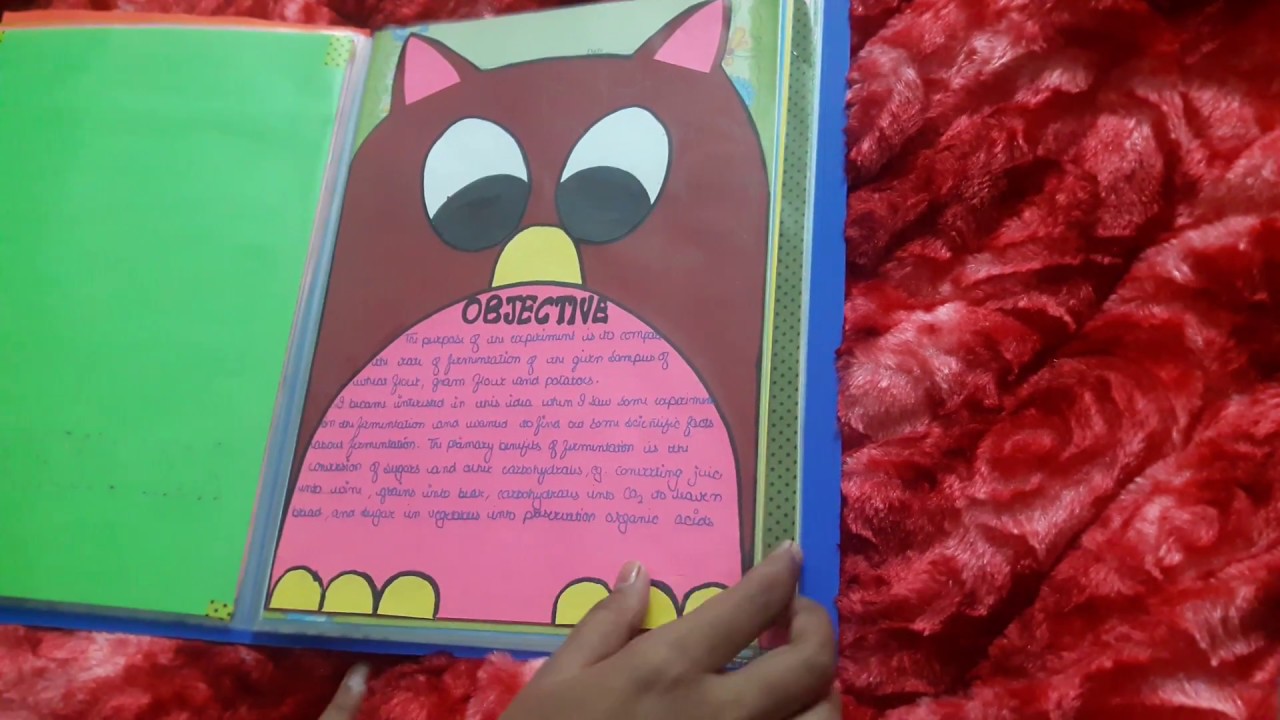 OBJECTIVE
The purpose of the experiment is to compa
the rate of fermentation of the given samples of
wheat flour, gram flour and potatoes.
I became interested in this idea when I saw some experimen
on the fermentation and wanted to find out some scientific facts
about fermentation. The primary benefits of fermentation is the
conversion of sugars and other carbohydrates, eg. converting juic
into wine, grains into bear, carbohydrates into CO2 to leaven
bread, and sugar in vegetables into preservation organic acids